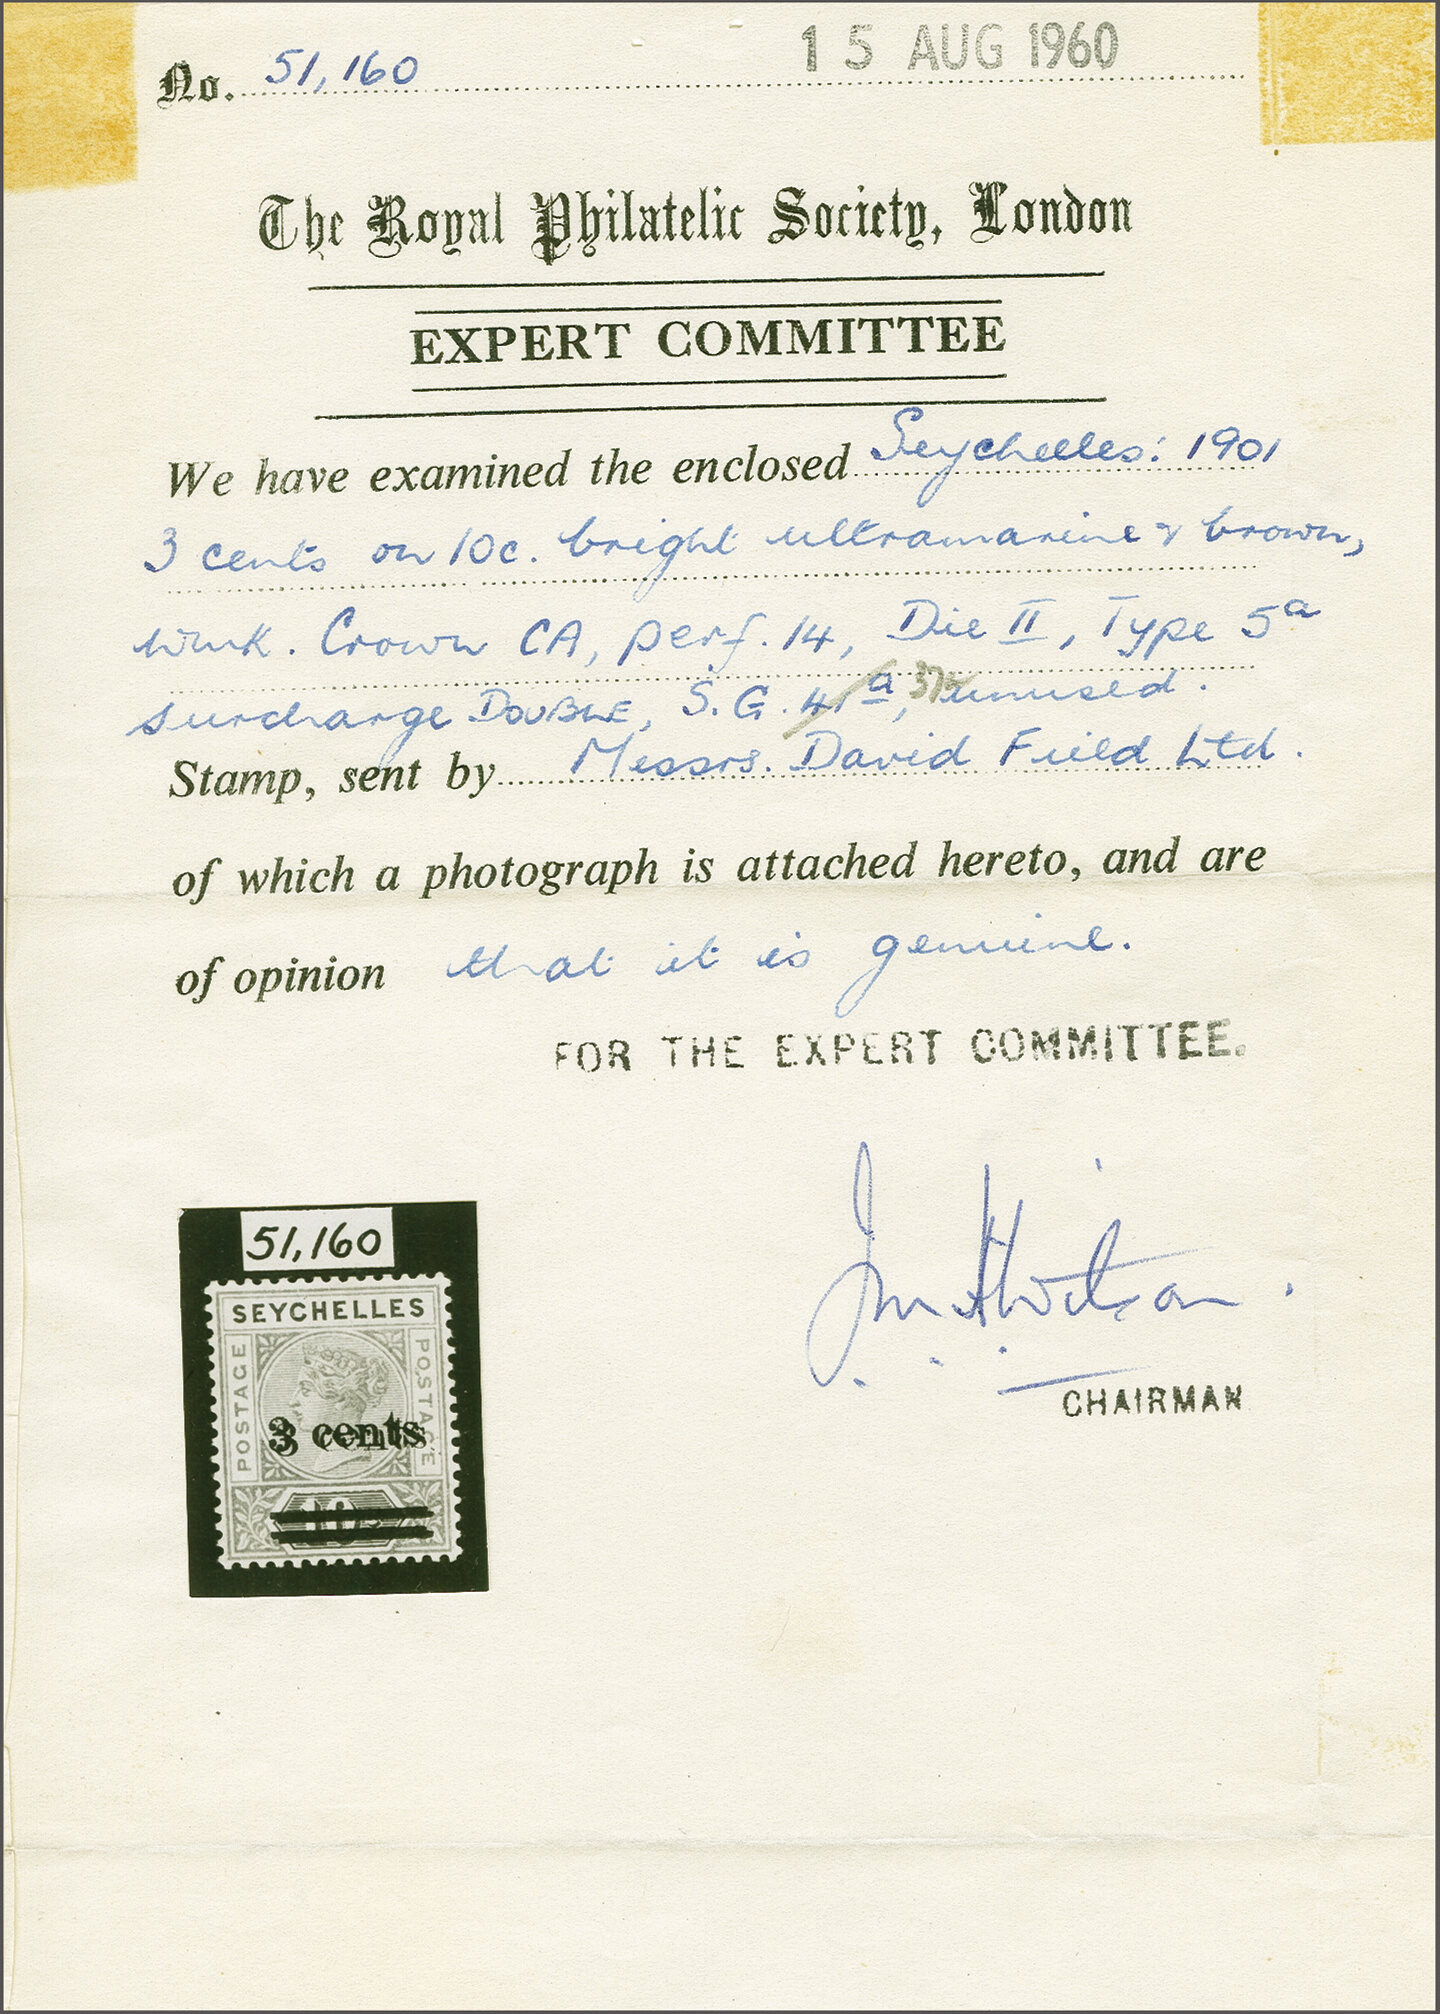 No. 51,160 15 AUG 1960
The Royal Philatelic Society, London
EXPERT COMMITTEE
We have examined the enclosed Seychelles: 1901
3 cents on 10c. bright ultramarine & brown,
wmk. Crown CA, perf. 14, Die II, Type 5a
surcharge DOUBLE, S.G. 41a, 37a unused.
Stamp, sent by Messrs. David Field Ltd.
of which a photograph is attached hereto, and are
of opinion that it is genuine.
FOR THE EXPERT COMMITTEE.
CHAIRMAN
51,160
SEYCHELLES
POSTAGE
POSTAGE
3 cents
10c